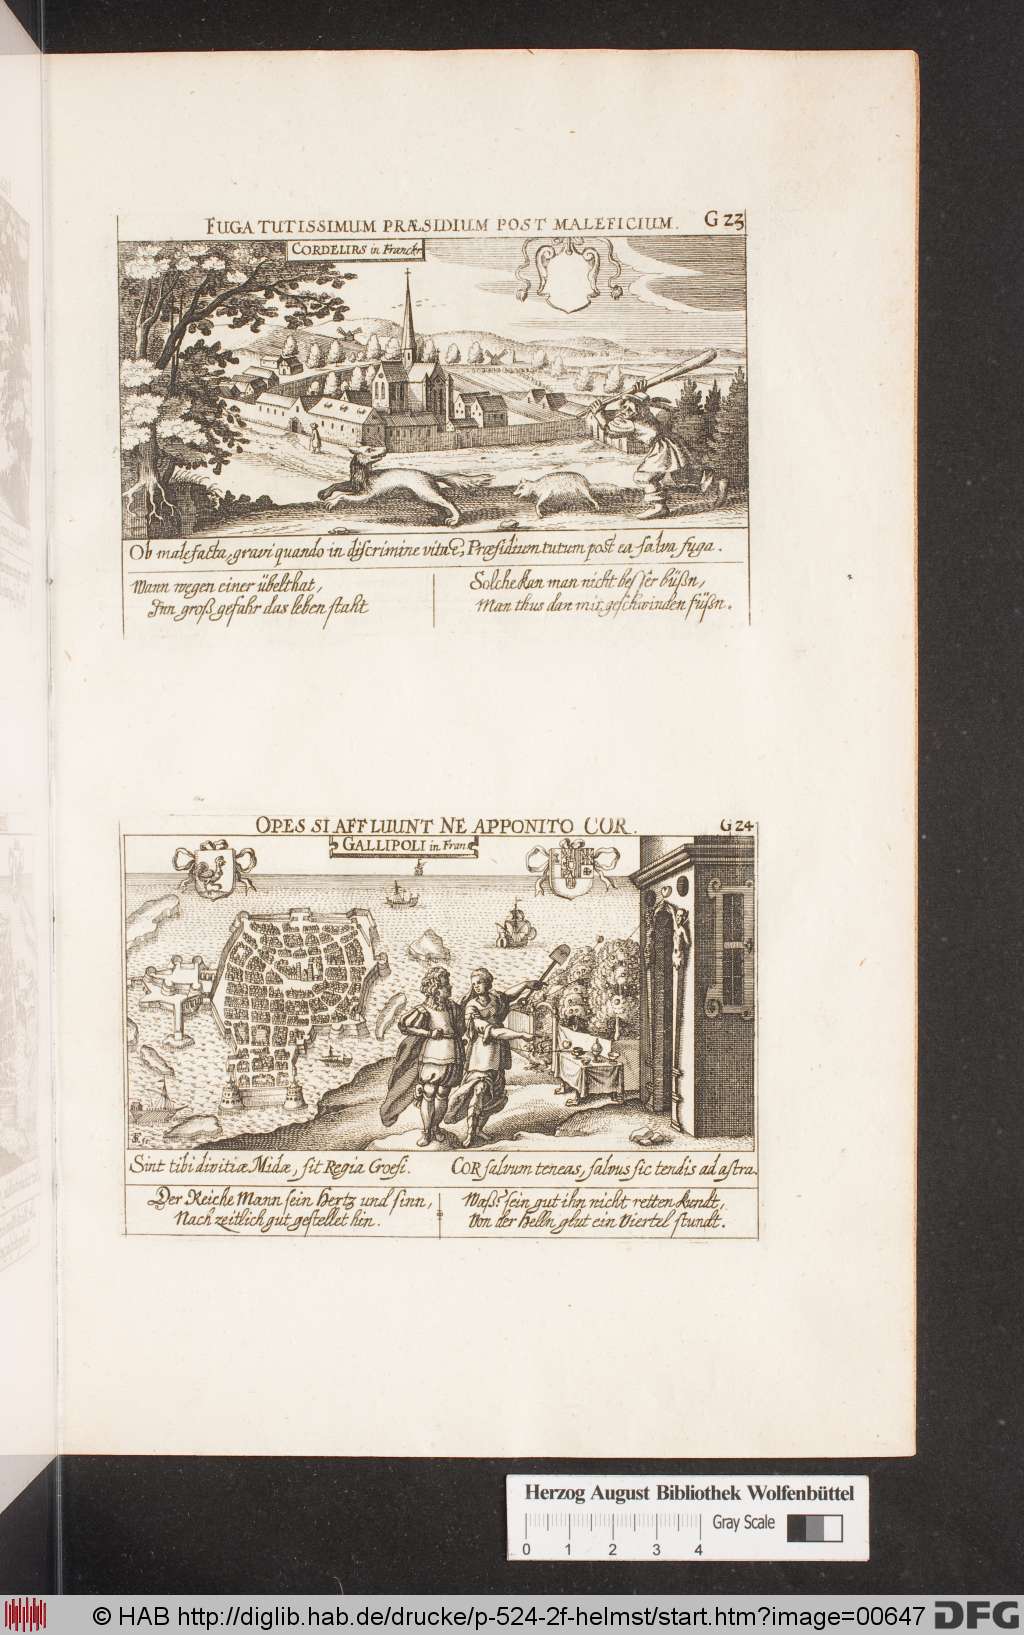 FUGA TUTISSIMUM PRÆSIDIUM POST MALEFICIUM.
G 23
CORDELIRS in Franckr
Ob malefacta, gravi quando in discrimine vita ē, Præsidium tutum post ea salva fuga.
Wann wegen einer übelthat,
Inn groß gefahr das leben staht
Solche kan man nicht besser büßn,
Man thus dan mit geschwinden füßn.
OPES SI AFFLUUNT NE APPONITO COR.
G 24
GALLIPOLI in Fran
Sint tibi divitiæ Midæ, sit Regia Croesi.
COR salvum teneas, salvus sic tendis ad astra.
Der Reiche Mann sein Hertz und sinn,
Nach zeitlich gut gestellet hin.
Waß? sein gut ihn nicht retten kundt,
Von der Helln glut ein Viertel stundt.
Herzog August Bibliothek Wolfenbüttel
Gray Scale
0 1 2 3 4
© HAB http://diglib.hab.de/drucke/p-524-2f-helmst/start.htm?image=00647
DFG